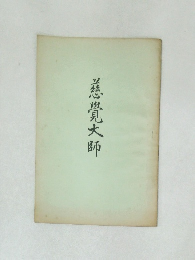 慈覺大師